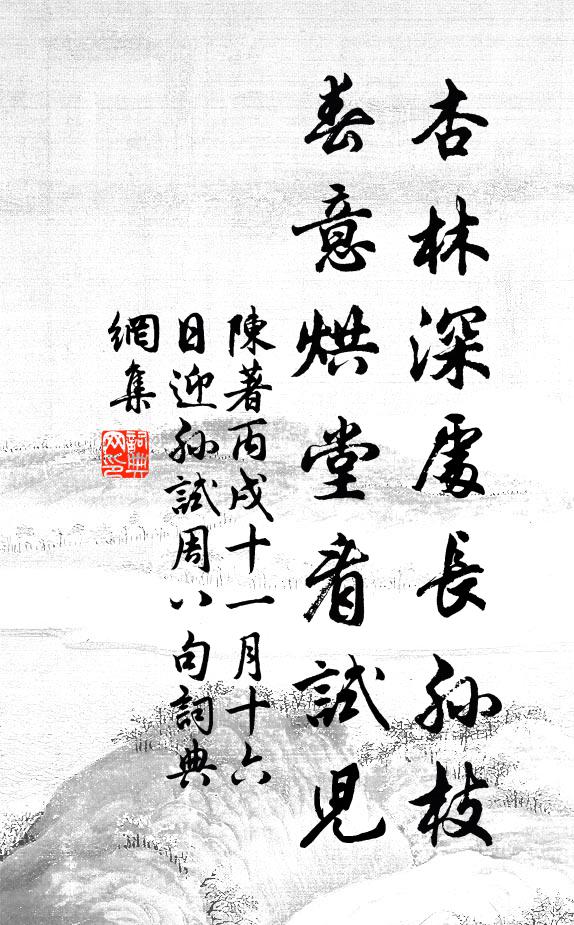 杏林深處長孫枝
春意烘堂看試兒
陳著丙戌十一月十六
日迎孙試周八句詞典
網集
詞典
网印